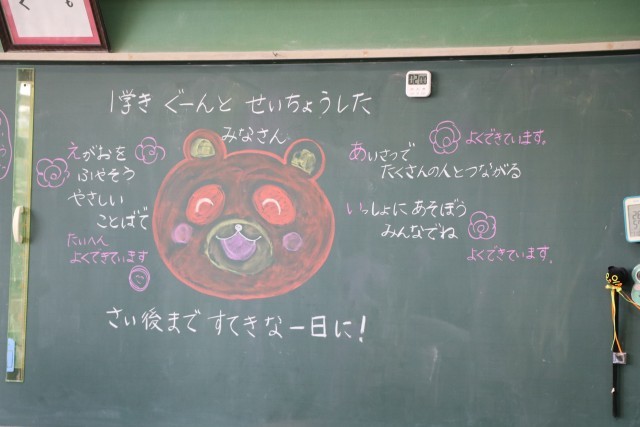 ぐも
1学き ぐーんと せいちょうした
みなさん
えがおを
ふやそう
やさしい
ことばで
たいへん
よくできています
あいさつで
たくさんの人とつながる
よくできています。
いっしょに あそぼう
みんなでね
よくできています。
さい後まで すてきな一日に!